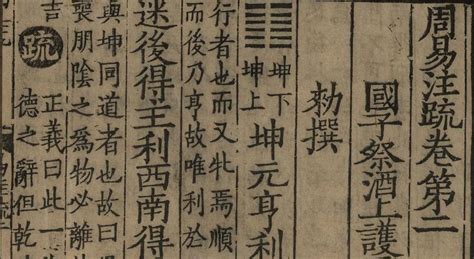 周易注疏卷第二
國子祭酒上護
勅撰
䷁
坤下
坤上
坤元亨利
行者也而又牝焉順
而後乃亨故唯利於
迷後得主利西南得
與坤同道者也故曰
喪朋陰之爲物必離
吉
疏
正義曰此一
德之辭但乾